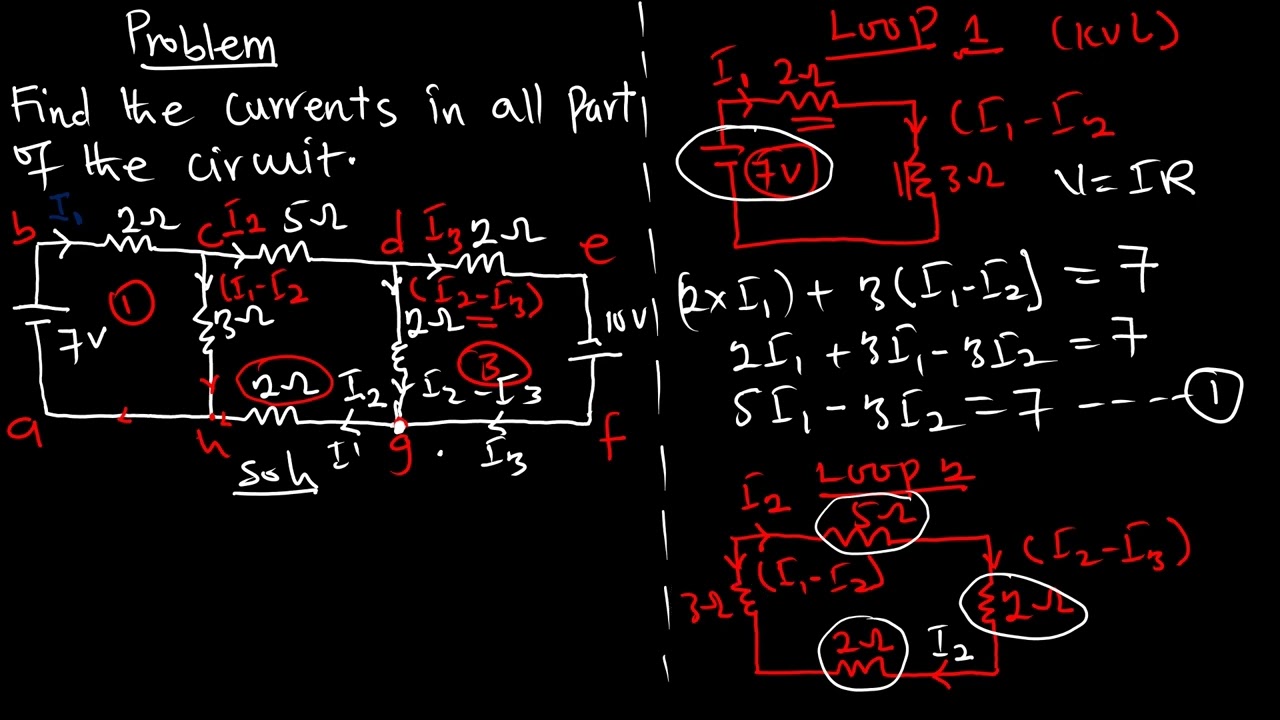 Problem
Find the currents in all part
of the circuit.
b I₁ 2Ω c I₂ 5Ω d I₃ 2Ω e
① (I₁-I₂ (I₂-I₃)
7V 3Ω 2Ω 10V
2Ω I₂ I₂-I₃ 3
a h I' g . I₃ f
Soln
Loop 1 (KVL)
I₁ 2Ω
(I₁-I₂
7V 3Ω V=IR
(2×I₁) + 3(I₁-I₂] = 7
2I₁ + 3I₁ - 3I₂ = 7
5I₁ - 3I₂ = 7 ----- ①
Loop 2
I₂ 5Ω
(I₁-I₂) (I₂-I₃)
3Ω 2Ω
2Ω I₂